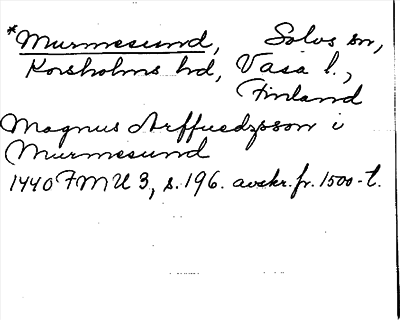 *Murmesund, Solvs sn,
Korsholms hd, Vasa l.,
Finland
Magnus Arffuedzson i
Murmesund
1440 FMU 3, s. 196. avskr. fr. 1500-t.